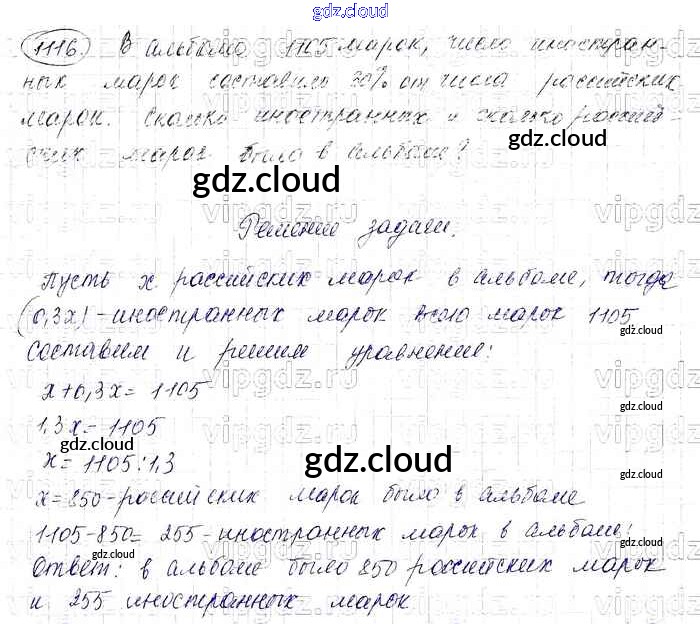 gdz.cloud
1116. В альбоме 1105 марок, число иностран-
ных марок составило 30% от числа российских
марок. Сколько иностранных и сколько россий-
ских марок было в альбоме?
gdz.cloud
gdz.cloud
Решение задачи.
Пусть x российских марок в альбоме, тогда
(0,3x) - иностранных марок всего марок 1105
gdz.cloud
Составим и решим уравнение:
x+0,3x= 1105
gdz.cloud
1,3x=1105
gdz.cloud
gdz.cloud
x= 1105:1,3
gdz.cloud
x=850-российских марок было в альбоме
1105-850= 255-иностранных марок в альбоме!
gdz.cloud
gdz.cloud
Ответ: в альбоме было 850 российских марок
и 255 иностранных марок
gdz.cloud